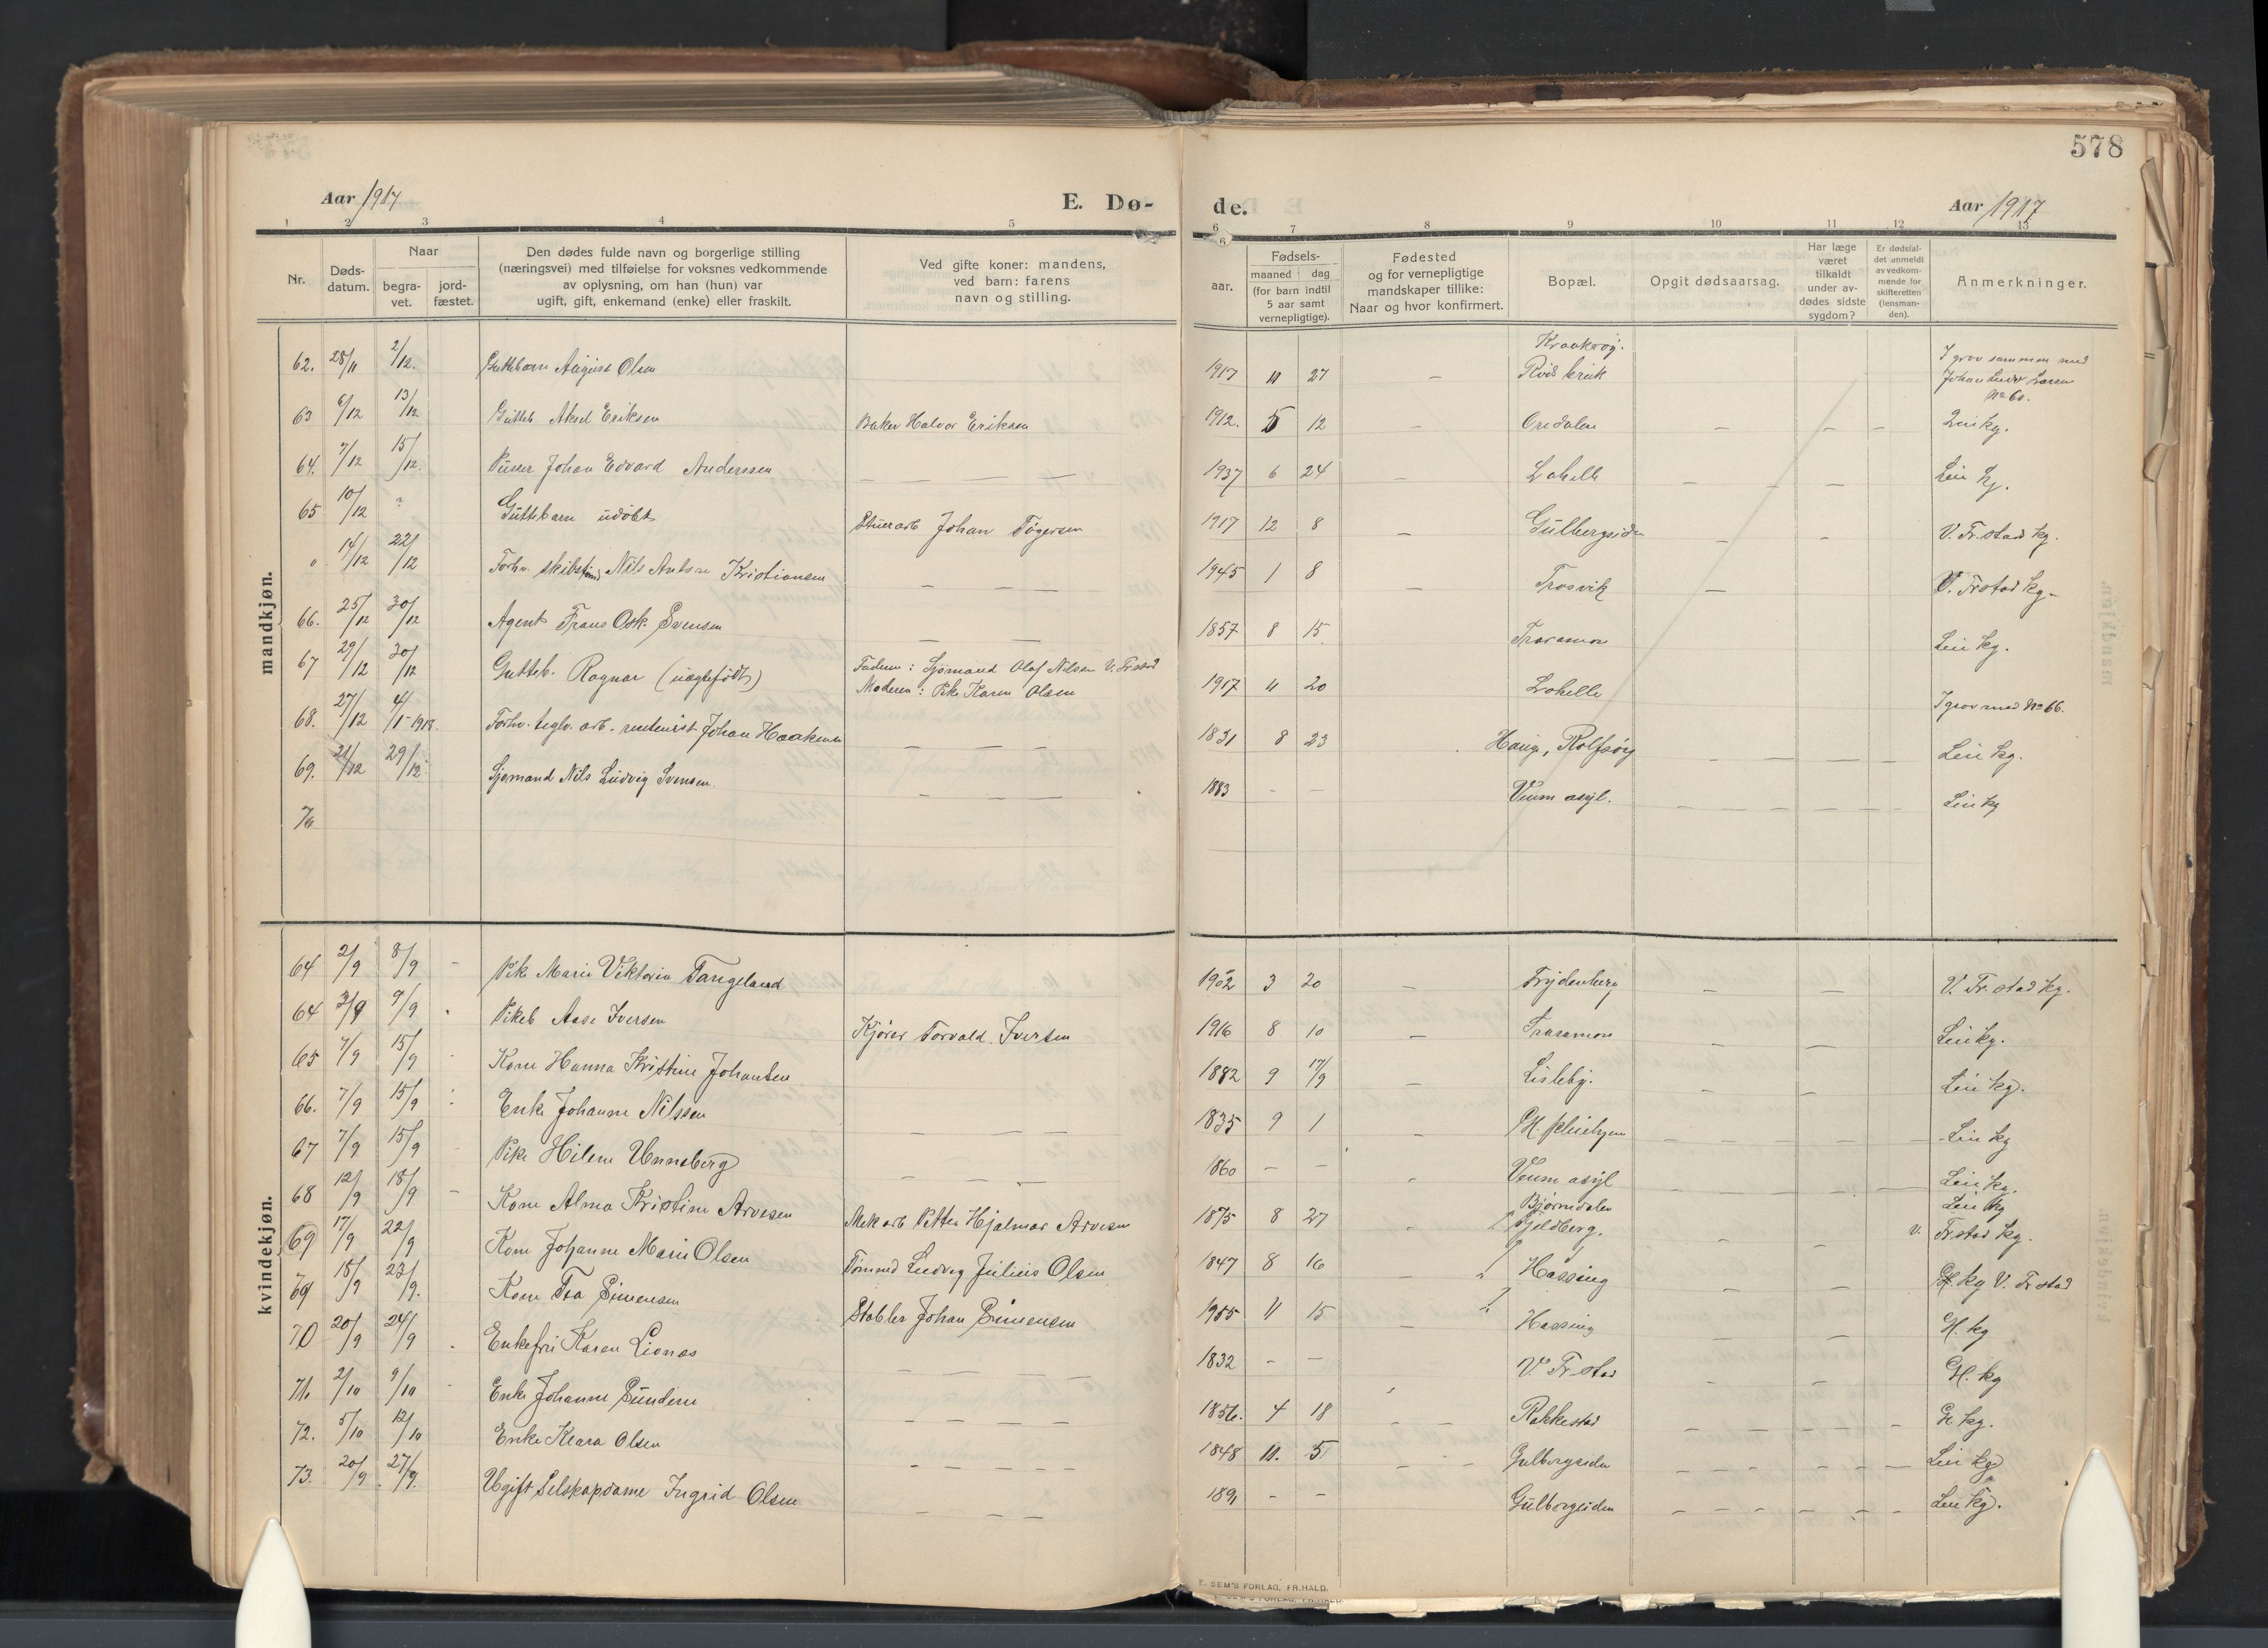 578
Aar 1917 E. Dø- de. Aar 1917
1 2 3 4 5 6 7 8 9 10 11 12 13
Nr. Døds-datum. Naar begra-vet. jord-fæstet. Den dødes fulde navn og borgerlige stilling (næringsvei) med tilføielse for voksnes vedkommende av oplysning, om han (hun) var ugift, gift, enkemand (enke) eller fraskilt. Ved gifte koner: mandens, ved barn: farens navn og stilling. Fødsels- aar. maaned dag (for barn indtil 5 aar samt vernepligtige). Fødested og for vernepligtige mandskaper tillike: Naar og hvor konfirmert. Bopæl. Opgit dødsaarsag. Har læge været tilkaldt under av-dødes sidste sygdom? Er dødsfal-det anmeldt av vedkom-mende for skifteretten (lensman-den). Anmerkninger.
mandkjøn.
62. 28/11 2/12. Guttebarn August Olsen 1917 11 27 – Kraakerøy. I grav sammen med Johan Ludv Larsen No 60.
63 6/12 13/12 Gutteb Aksel Eriksen Baker Halvor Eriksen 1912. 5 12 – Oredalen – – – Leie kg.
64. 7/12 15/12. Pusser Johan Edvard Anderssen – – – – 1937 6 24 – Lahelle – – – Leie kg.
65 10/12 ? Guttebarn udøbt Stuerarb Johan Tøgersen 1917 12 8 – Gulbergsiden – – V. Fr.stad kg.
" 14/12 22/12 Forhv. Nils Anton Kristiansen – – 1945 1 8 – Trosvik – V. Frstad kg –
66. 25/12 30/12 Agent Frans Osk. Svensen – – 1857 8 15 Traramon Leie kg.
67 29/12 30/12 Gutteb. Ragnar (uægtefødt) Faderen: Sjømand Olaf Nilsen V. Frstad Moderen: Pike Karen Olsen 1917 11 20 Lahelle I grav med No 66.
68. 27/12 4/1 1918. Forhv. teglv. arb. Johan Haakensen – – – 1831 8 23 Hauge, Rolfsøy – – – – – Leie kg.
69. 21/12 29/12. Sjømand Nils Ludvig Svensen. – – – 1883 – – Veum asyl. – – – – – – Leie kg
70
kvindekjøn.
64 2/9 8/9 – Pike Marie Viktoria Tangeland 1902 3 20 – Frydenberg – – V. Fr.stad kg.
64 3/9 9/9 . Pikeb Aase Iversen Kjører Torvald Iversen 1916 8 10 – Traramon – – Leie kg.
65 7/9 15/9 Kone Hanna Kristine Johansen 1882 9 17/9 – Lisleby. – – Leie kg.
66. 7/9 15/9 Enke Johanne Nilssen – – – 1835 9 1 – Gl. pleiehjem Leie kg
67 7/9 15/9 Pike Hilene Unneberg – – – 1860 – – Veum asyl Leie kg.
68 12/9 18/9 – Kone Alma Kristine Arvesen Mek arb Petter Hjalmar Arvesen 1875 8 27 Bjørndalen Leie kg
69 17/9 22/9 Kone Johanne Marie Olsen Tømmed Ludvig Julius Olsen 1847 8 16 Kjeldberg. Hassing V. Frstad kg.
69 18/9 23/9. Kone Tea Simensen Stabler Johan Simensen 1955 11 15 – Hassing – – kg V. Frstad
70 20/9 24/9 Enkefru Karen Lionæs – – – – 1832 – – V. Fr.stad – – Gl. kg
71. 2/10 9/10 – Enke Johanne Sundene – – – – 1856. 4 18 – – Rakkestad Gl. kg
72. 5/10 12/10 Enke Klara Olsen – – – – 1848 11. 5 – – Gulbergsiden Gl kg. Leie kg
73. 20/9 27/9. Ugift Selskapsdame Ingrid Olsen – – – – 1891 – – Gulbergsiden – – – – – – Leie kg.
E. SEM'S FORLAG, FR.HALD.